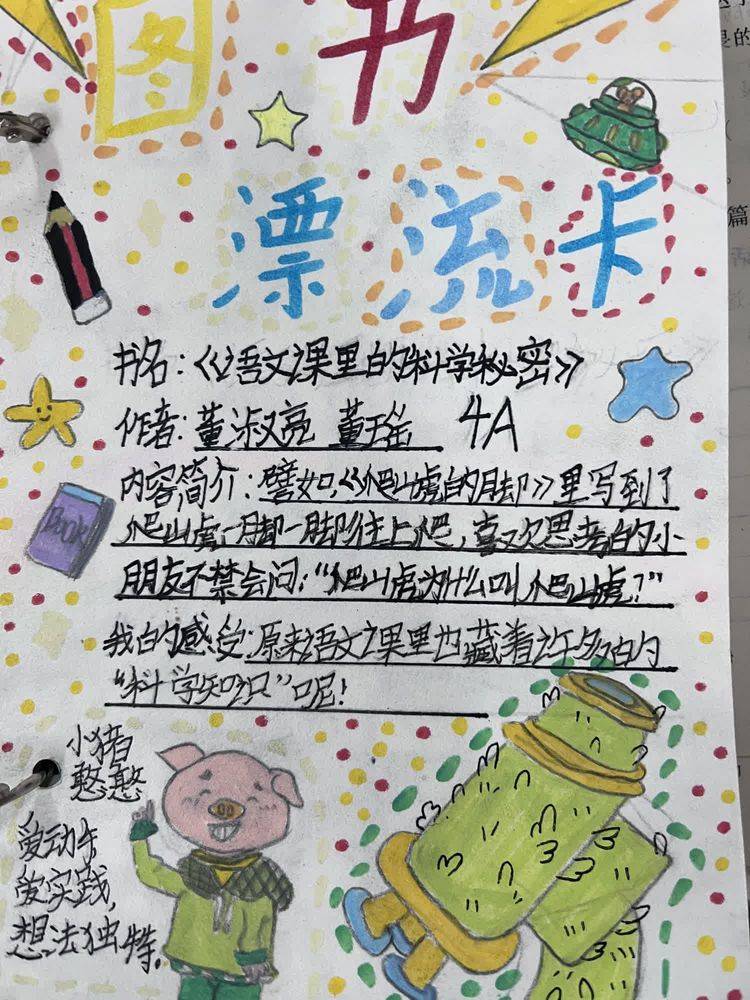 图书
漂流卡
书名：《语文课里的科学秘密》
作者：董淑亮 董瑶 4A
内容简介：譬如，《爬山虎的脚》里写到了
爬山虎一脚一脚往上爬，喜欢思考的小
朋友不禁会问：“爬山虎为什么叫爬山虎？”
我的感受：原来语文课里也藏着许多的
“科学知识”呢！
BOOK
小猪
憨憨
爱动手
爱实践，
想法独特.
是的
篇